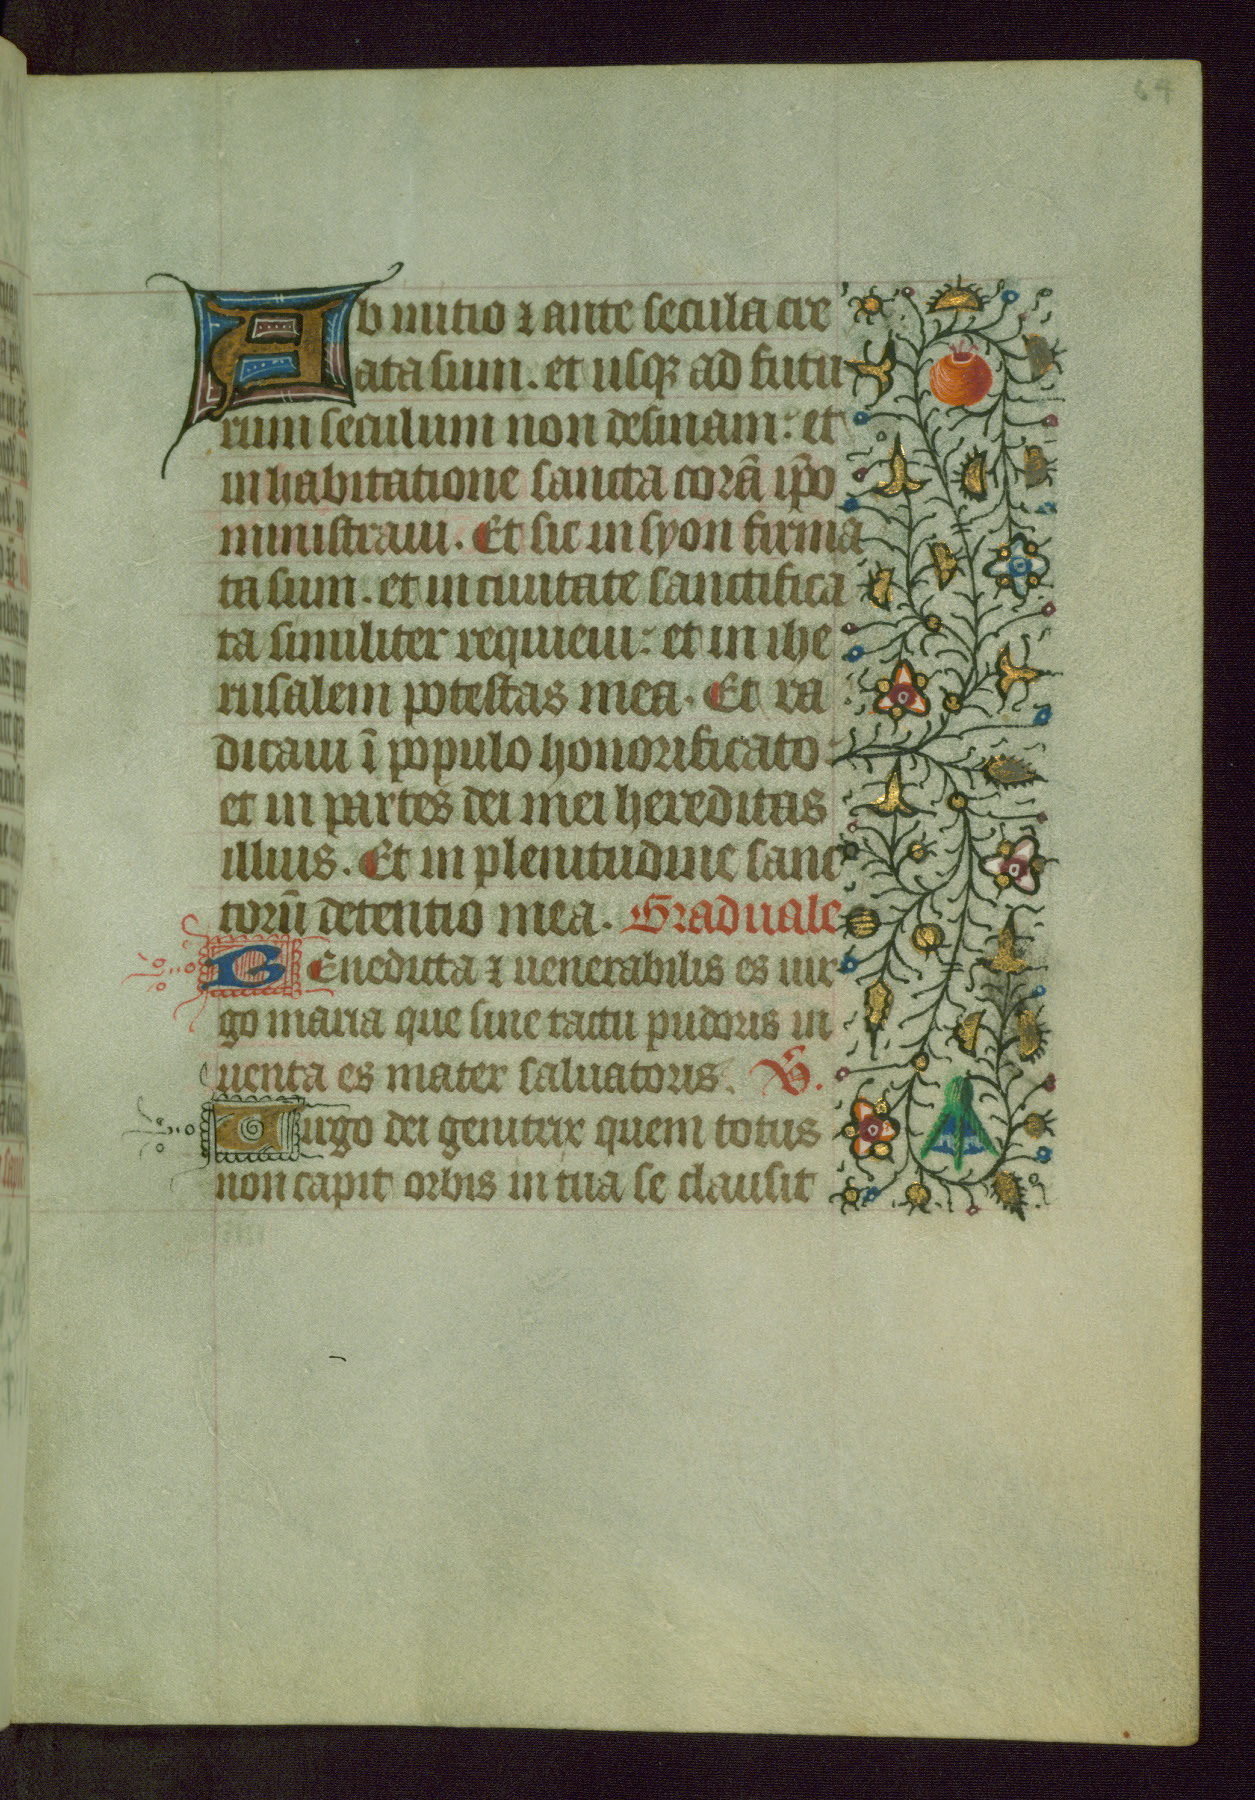 64
Ab initio ⁊ ante secula cre
ata sum. et usqꝫ ad futu
rum seculum non desinam: et
in habitatione sancta corā ip̄o
ministraui. Et sic in syon firma
ta sum. et in ciuitate sanctifica
ta similiter requieui: et in ihe
rusalem potestas mea. Et ra
dicaui ī populo honorificato
et in partes dei mei hereditas
illius. Et in plenitudine sanc
torū detentio mea. Graduale
Benedicta ⁊ uenerabilis es uir
go maria que sine tactu pudoris in
uenta es mater saluatoris. V̄.
Uirgo dei genitrix quem totus
non capit orbis in tua se clausit